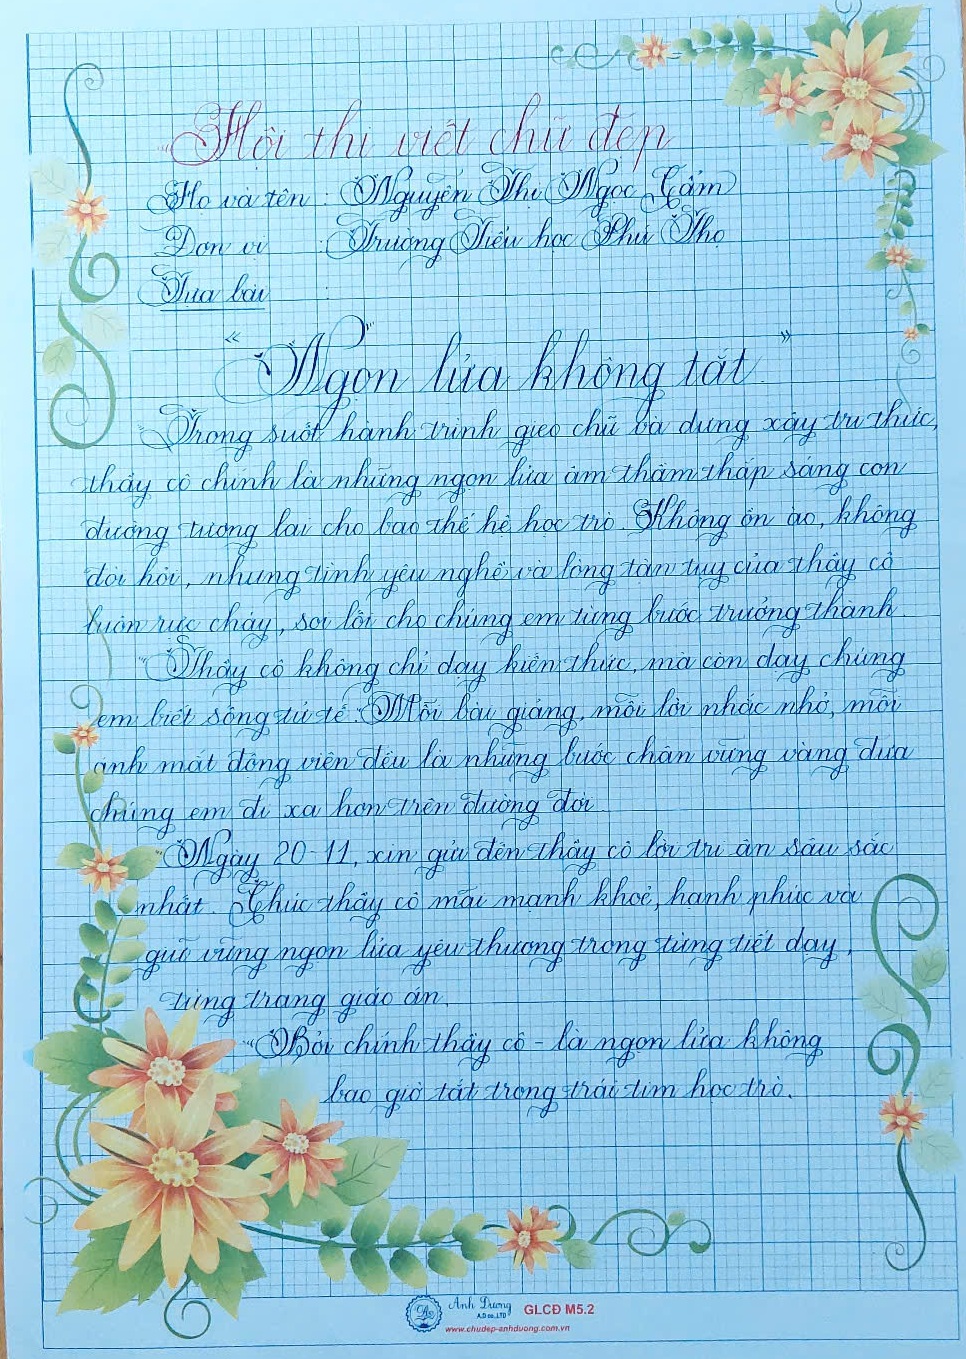 Hội thi viết chữ đẹp
Họ và tên : Nguyễn Thị Ngọc Cẩm
Đơn vị : Trường Tiểu học Phú Thọ
Tựa bài :
"Ngọn lửa không tắt"
Trong suốt hành trình gieo chữ và dựng xây tri thức,
thầy cô chính là những ngọn lửa âm thầm thắp sáng con
đường tương lai cho bao thế hệ học trò. Không ồn ào, không
đòi hỏi, nhưng tình yêu nghề và lòng tận tụy của thầy cô
luôn rực cháy, soi lối cho chúng em từng bước trưởng thành.
Thầy cô không chỉ dạy kiến thức, mà còn dạy chúng
em biết sống tử tế. Mỗi bài giảng, mỗi lời nhắc nhở, mỗi
ánh mắt động viên đều là những bước chân vững vàng đưa
chúng em đi xa hơn trên đường đời.
Ngày 20-11, xin gửi đến thầy cô lời tri ân sâu sắc
nhất. Chúc thầy cô mãi mạnh khoẻ, hạnh phúc và
giữ vững ngọn lửa yêu thương trong từng tiết dạy,
từng trang giáo án.
Bởi chính thầy cô - là ngọn lửa không
bao giờ tắt trong trái tim học trò.
Ánh Dương
A.D co.,LTD
GLCĐ M5.2
www.chudep-anhduong.com.vn